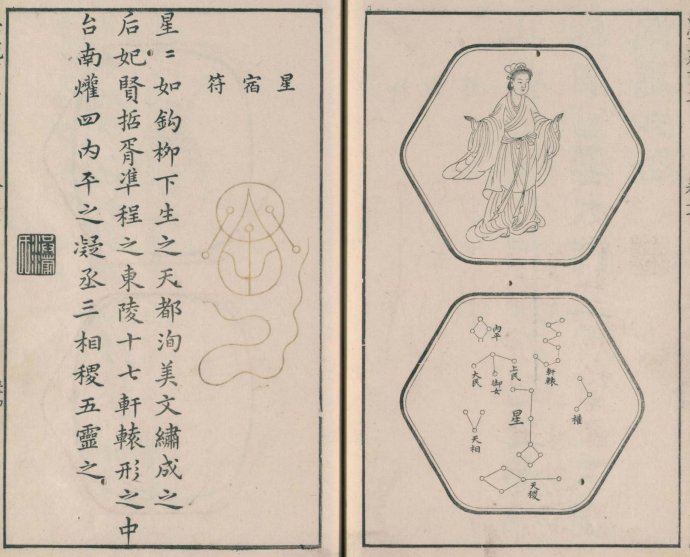 內平
軒轅
御女
大民
爟
星
天相
天稷
星宿符
星〻如鈎柳下生之天都洵美文繡成之
后妃賢哲胥準程之東陵十七軒轅形之中
台南爟四內平之凝丞三相稷五靈之